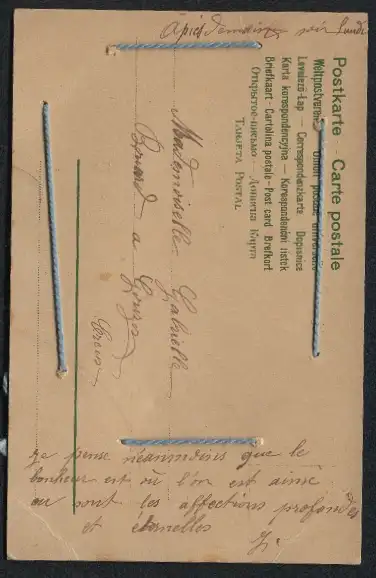 Postkarte — Carte postale
Weltpostverein — Union postale universelle
Levelező-Lap — Correspondenzkarte Dopisnice
Karta korespondencyjna — Korespondenční lístek
Briefkaart - Cartolina postale - Post card Brefkort
Открытое письмо —
TARJETA POSTAL
Mademoiselle Gabrielle
a
je pense néanmoins que le
bonheur est où l'on est aimé
ou sont les affections profondes
et éternelles